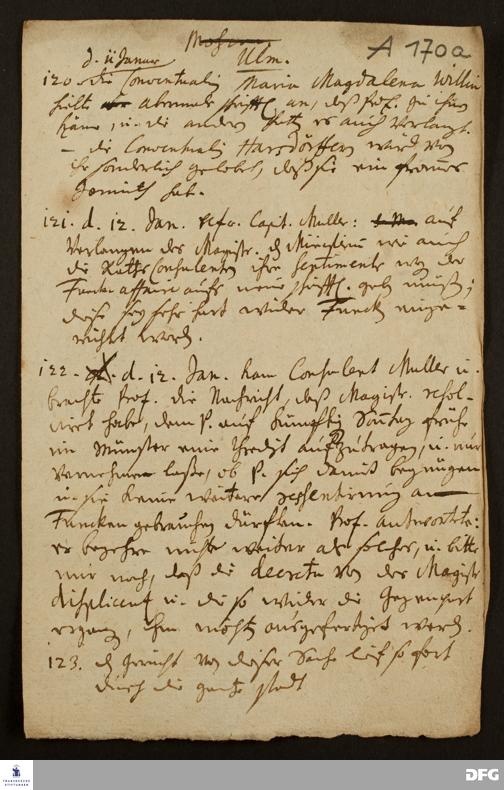 A 170a
Ulm.
d. 11 Januar
120. die Conventualin Maria Magdalena Willin
hielte abermals schrifftl. an, daß Prof. zu ihm
käme, u. die andern hetten es auch verlangt.
– die Conventualin Harsdörfferin wurde von
ihr sonderlich gelobet, daß sie ein frommes
Gemüth hat.
121. d. 12. Jan. refer. Capit. Muller: auf
Verlangen des Magistr. das Ministerium wie auch
die Raths Consulenten ihre sentimente weg. der
Funck. affaire aufs neue schrifftl. geben müßen;
diese sey sehr hart wider Funcken einge=
richtet worden.
122. d. 12. Jan. kam Consulent Muller u.
brachte Prof. die Nachricht, daß Magistr. resol-
virt habe, dem P. auf künfftig Sontag frühe
im Münster eine Predigt aufzutragen, u. nur
vernehmen laße, ob P. sich damit begnügen
u. sie keine weitere ressentirung an
Funcken gebrauchen dürfften. Prof. antwortete:
er begehre nichts weiter als solches, u. bitte
nur noch, daß die decreta von des Magistr.
displicenz u. die so wider die Gegenpart
ergang, ihm möchte ausgefertiget werd.
123. das Gerücht von dieser Sache lief so fort
durch die gantze Stadt
FRANCKESCHE
STIFTUNGEN
DFG